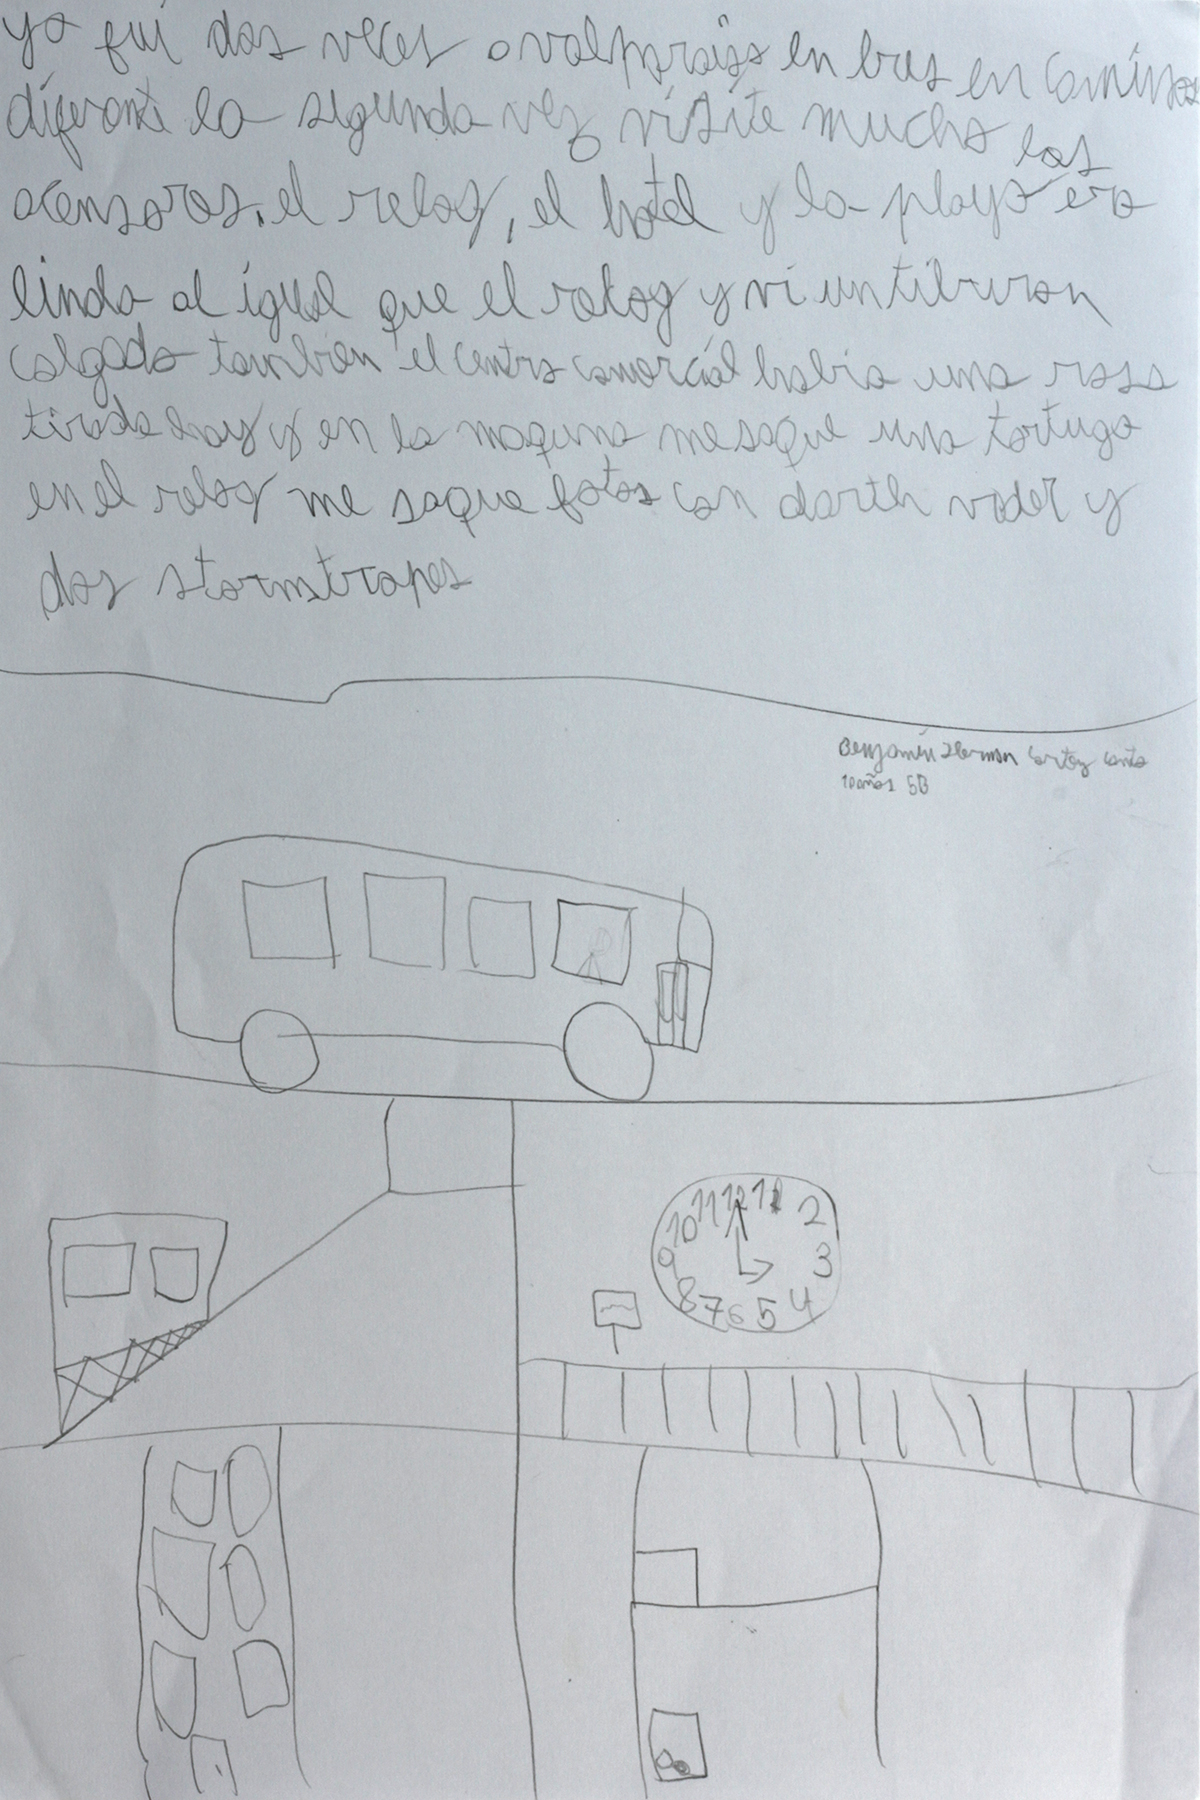 yo fui dos veces a valparaiso en bus en caminos
diferente la segunda vez visite mucho los
acensores, el reloj, el hotel y la playa era
linda al igual que el reloj y vi un tiburon
colgado tambien el centro comercial habia una rosa
tirada hay y en la maquina me saque una tortuga
en el reloj me saque fotos con darth vader y
dos stormtropes
Benjamín Herman Cortez
10 años 5B
11 12 1 2
10
9 3
8 7 6 5 4